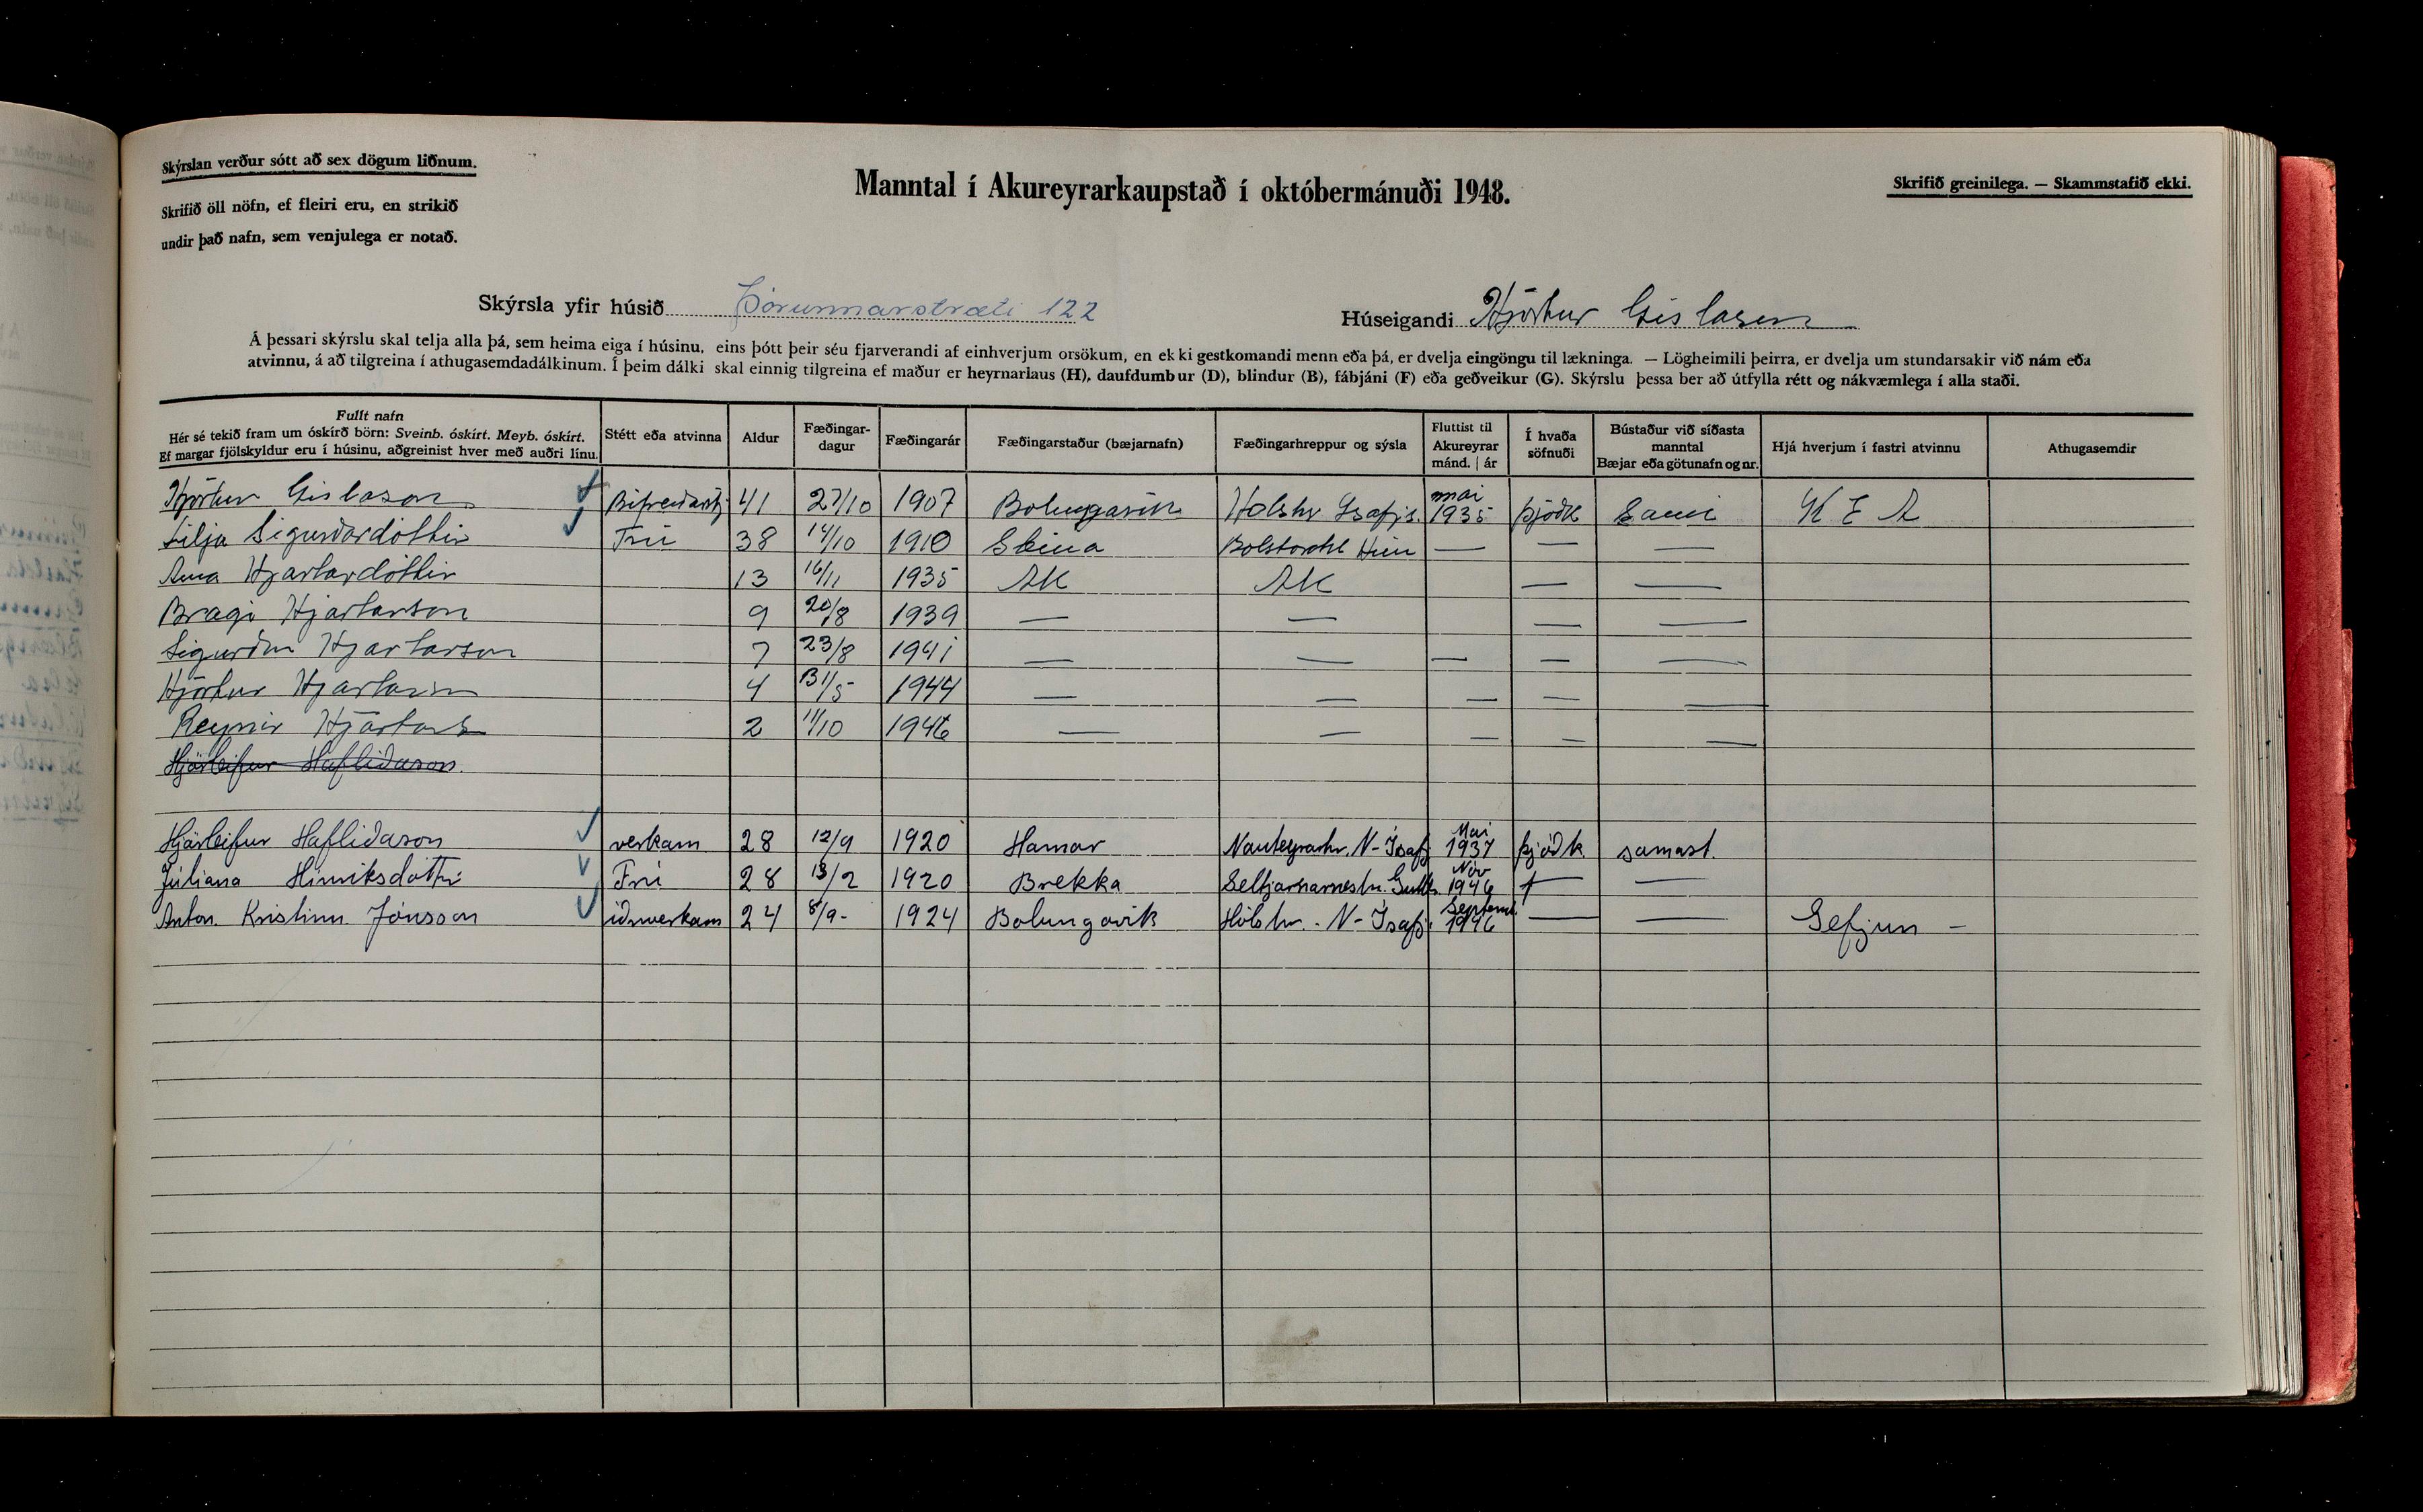 Skýrslan verður sótt að sex dögum liðnum.
Skrifið öll nöfn, ef fleiri eru, en strikið
undir það nafn, sem venjulega er notað.
Manntal í Akureyrarkaupstað í októbermánuði 1948.
Skrifið greinilega. — Skammstafið ekki.
Skýrsla yfir húsið Þórunnarstræti 122
Húseigandi Hjörtur Gíslason
Á þessari skýrslu skal telja alla þá, sem heima eiga í húsinu, eins þótt þeir séu fjarverandi af einhverjum orsökum, en ekki gestkomandi menn eða þá, er dvelja eingöngu til lækninga. — Lögheimili þeirra, er dvelja um stundarsakir við nám eða
atvinnu, á að tilgreina í athugasemdadálkinum. Í þeim dálki skal einnig tilgreina ef maður er heyrnarlaus (H), daufdumbur (D), blindur (B), fábjáni (F) eða geðveikur (G). Skýrslu þessa ber að útfylla rétt og nákvæmlega í alla staði.
Fullt nafn
Hér sé tekið fram um óskírð börn: Sveinb. óskírt. Meyb. óskírt.
Ef margar fjölskyldur eru í húsinu, aðgreinist hver með auðri línu.
Stétt eða atvinna
Aldur
Fæðingar-
dagur
Fæðingarár
Fæðingarstaður (bæjarnafn)
Fæðingarhreppur og sýsla
Fluttist til
Akureyrar
mánd. | ár
Í hvaða
söfnuði
Bústaður við síðasta
manntal
Bæjar eða götunafn og nr.
Hjá hverjum í fastri atvinnu
Athugasemdir
Hjörtur Gislason Bifreiðastj 41 27/10 1907 Bolungarvík Holshr Isafjs. mai 1935 þjóðk Sami K E A
Lilja Sigurðardóttir Frú 38 14/10 1910 — — —
Anna Hjartardóttir 13 16/11 1935 AK AK — —
Bragi Hjartarson 9 20/8 1939 — — — —
Sigurður Hjartarson 7 23/8 1941 — — — — —
Hjörtur Hjartarson 4 1944 — — — — —
Reynir Hjartars 2 11/10 1946 — — — — —
Hjörleifur Hafliðason.
Hjörleifur Hafliðason verkam 28 12/9 1920 Hamar Nauteyrarhr. N-Ísafj Mai 1937 þjóðk samast.
Júliana Hinriksdóttir Frú 28 13/2 1920 Brekka Seltjarnarneshr. Gullbr. Nóv 1946 — —
Anton Kristinn Jónsson iðnverkam 24 8/9- 1924 Bolungavik Hólshr. N-Ísafj. Septemb. 1946 — — Gefjun -